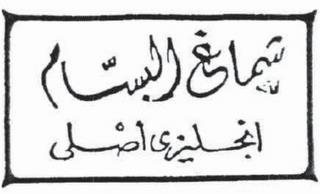 شماغ البسام
انجليزي أصلي